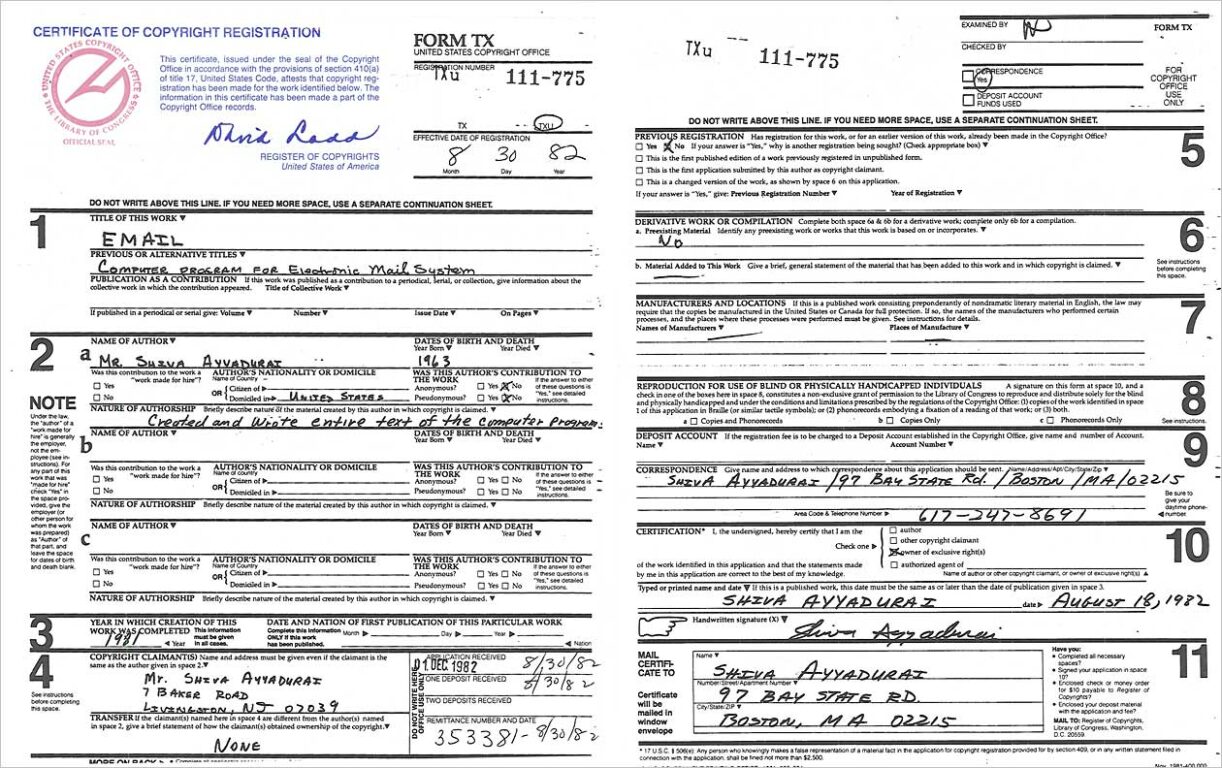 CERTIFICATE OF COPYRIGHT REGISTRATION
UNITED STATES COPYRIGHT OFFICE
THE LIBRARY OF CONGRESS
OFFICIAL SEAL
This certificate, issued under the seal of the Copyright
Office in accordance with the provisions of section 410(a)
of title 17, United States Code, attests that copyright reg-
istration has been made for the work identified below. The
information in this certificate has been made a part of the
Copyright Office records.
David Ladd
REGISTER OF COPYRIGHTS
United States of America
FORM TX
UNITED STATES COPYRIGHT OFFICE
REGISTRATION NUMBER
TXu 111-775
TX TXU
EFFECTIVE DATE OF REGISTRATION
8 30 82
Month Day Year
DO NOT WRITE ABOVE THIS LINE. IF YOU NEED MORE SPACE, USE A SEPARATE CONTINUATION SHEET.
1
TITLE OF THIS WORK ▼
EMAIL
PREVIOUS OR ALTERNATIVE TITLES ▼
COMPUTER PROGRAM FOR Electronic Mail System
PUBLICATION AS A CONTRIBUTION If this work was published as a contribution to a periodical, serial, or collection, give information about the
collective work in which the contribution appeared. Title of Collective Work ▼
If published in a periodical or serial give: Volume ▼ Number ▼ Issue Date ▼ On Pages ▼
2
NAME OF AUTHOR ▼ DATES OF BIRTH AND DEATH
Year Born ▼ Year Died ▼
a
Mr. SHIVA AYYADURAI 1963
Was this contribution to the work a
"work made for hire"?
Yes
No
AUTHOR'S NATIONALITY OR DOMICILE
Name of Country
OR { Citizen of ▶
Domiciled in ▶ UNITED STATES
WAS THIS AUTHOR'S CONTRIBUTION TO
THE WORK
Anonymous? Yes No
Pseudonymous? Yes No
If the answer to either
of these questions is
"Yes," see detailed
instructions.
NATURE OF AUTHORSHIP Briefly describe nature of the material created by this author in which copyright is claimed. ▼
Created and Wrote entire text of the computer program.
NOTE
Under the law,
the "author" of a
"work made for
hire" is generally
the employer,
not the em-
ployee (see in-
structions). For
any part of this
work that was
"made for hire"
check "Yes" in
the space pro-
vided, give the
employer (or
other person for
whom the work
was prepared)
as "Author" of
that part, and
leave the space
for dates of birth
and death blank.
b
NAME OF AUTHOR ▼ DATES OF BIRTH AND DEATH
Year Born ▼ Year Died ▼
Was this contribution to the work a
"work made for hire"?
Yes
No
AUTHOR'S NATIONALITY OR DOMICILE
Name of country
OR { Citizen of ▶
Domiciled in ▶
WAS THIS AUTHOR'S CONTRIBUTION TO
THE WORK
Anonymous? Yes No
Pseudonymous? Yes No
If the answer to either
of these questions is
"Yes," see detailed
instructions.
NATURE OF AUTHORSHIP Briefly describe nature of the material created by this author in which copyright is claimed. ▼
c
NAME OF AUTHOR ▼ DATES OF BIRTH AND DEATH
Year Born ▼ Year Died ▼
Was this contribution to the work a
"work made for hire"?
Yes
No
AUTHOR'S NATIONALITY OR DOMICILE
Name of Country
OR { Citizen of ▶
Domiciled in ▶
WAS THIS AUTHOR'S CONTRIBUTION TO
THE WORK
Anonymous? Yes No
Pseudonymous? Yes No
If the answer to either
of these questions is
"Yes," see detailed
instructions.
NATURE OF AUTHORSHIP Briefly describe nature of the material created by this author in which copyright is claimed. ▼
3
YEAR IN WHICH CREATION OF THIS
WORK WAS COMPLETED This information
must be given
in all cases.
1981 ◀ Year
DATE AND NATION OF FIRST PUBLICATION OF THIS PARTICULAR WORK
Complete this information
ONLY if this work
has been published.
Month ▶ Day ▶ Year ▶
◀ Nation
4
See instructions
before completing
this space.
COPYRIGHT CLAIMANT(S) Name and address must be given even if the claimant is the
same as the author given in space 2.▼
Mr. SHIVA AYYADURAI
7 BAKER ROAD
LIVINGSTON, NJ 07039
TRANSFER If the claimant(s) named here in space 4 are different from the author(s) named
in space 2, give a brief statement of how the claimant(s) obtained ownership of the copyright.▼
NONE
DO NOT WRITE HERE
OFFICE USE ONLY
APPLICATION RECEIVED
01 DEC 1982 8/30/82
ONE DEPOSIT RECEIVED
8/30/82
TWO DEPOSITS RECEIVED
REMITTANCE NUMBER AND DATE
353381-8/30/82
MORE ON BACK ▶
TXu 111-775
EXAMINED BY
CHECKED BY
CORRESPONDENCE
Yes
DEPOSIT ACCOUNT
FUNDS USED
FORM TX
FOR
COPYRIGHT
OFFICE
USE
ONLY
DO NOT WRITE ABOVE THIS LINE. IF YOU NEED MORE SPACE, USE A SEPARATE CONTINUATION SHEET.
PREVIOUS REGISTRATION Has registration for this work, or for an earlier version of this work, already been made in the Copyright Office?
Yes No If your answer is "Yes," why is another registration being sought? (Check appropriate box) ▼
This is the first published edition of a work previously registered in unpublished form.
This is the first application submitted by this author as copyright claimant.
This is a changed version of the work, as shown by space 6 on this application.
If your answer is "Yes," give: Previous Registration Number ▼ Year of Registration ▼
5
DERIVATIVE WORK OR COMPILATION Complete both space 6a & 6b for a derivative work; complete only 6b for a compilation.
a. Preexisting Material Identify any preexisting work or works that this work is based on or incorporates. ▼
No
b. Material Added to This Work Give a brief, general statement of the material that has been added to this work and in which copyright is claimed. ▼
6
See instructions
before completing
this space.
MANUFACTURERS AND LOCATIONS If this is a published work consisting preponderantly of nondramatic literary material in English, the law may
require that the copies be manufactured in the United States or Canada for full protection. If so, the names of the manufacturers who performed certain
processes, and the places where these processes were performed must be given. See instructions for details.
Names of Manufacturers ▼ Places of Manufacture ▼
7
REPRODUCTION FOR USE OF BLIND OR PHYSICALLY HANDICAPPED INDIVIDUALS A signature on this form at space 10, and a
check in one of the boxes here in space 8, constitutes a non-exclusive grant of permission to the Library of Congress to reproduce and distribute solely for the blind
and physically handicapped and under the conditions and limitations prescribed by the regulations of the Copyright Office: (1) copies of the work identified in space
1 of this application in Braille (or similar tactile symbols); or (2) phonorecords embodying a fixation of a reading of that work; or (3) both.
a Copies and Phonorecords b Copies Only c Phonorecords Only
8
See instructions.
DEPOSIT ACCOUNT If the registration fee is to be charged to a Deposit Account established in the Copyright Office, give name and number of Account.
Name ▼ Account Number ▼
9
CORRESPONDENCE Give name and address to which correspondence about this application should be sent. Name/Address/Apt/City/State/Zip ▼
SHIVA AYYADURAI / 97 BAY STATE Rd. / BOSTON / MA / 02215
Area Code & Telephone Number ▶ 617-247-8691
Be sure to
give your
daytime phone
◀ number.
CERTIFICATION* I, the undersigned, hereby certify that I am the
Check one ▶
author
other copyright claimant
owner of exclusive right(s)
authorized agent of
Name of author or other copyright claimant, or owner of exclusive right(s) ▲
of the work identified in this application and that the statements made
by me in this application are correct to the best of my knowledge.
10
Typed or printed name and date ▼ If this is a published work, this date must be the same as or later than the date of publication given in space 3.
SHIVA AYYADURAI date ▶ AUGUST 18, 1982
Handwritten signature (X) ▼
Shiva Ayyadurai
MAIL
CERTIFI-
CATE TO
Certificate
will be
mailed in
window
envelope
Name ▼
SHIVA AYYADURAI
Number/Street/Apartment Number ▼
97 BAY STATE RD.
City/State/ZIP ▼
BOSTON, MA 02215
Have you:
• Completed all necessary
spaces?
• Signed your application in space
10?
• Enclosed check or money order
for $10 payable to Register of
Copyrights?
• Enclosed your deposit material
with the application and fee?
MAIL TO: Register of Copyrights,
Library of Congress, Washington,
D.C. 20559.
11
* 17 U.S.C. § 506(e): Any person who knowingly makes a false representation of a material fact in the application for copyright registration provided for by section 409, or in any written statement filed in
connection with the application, shall be fined not more than $2,500.
Nov. 1981-400,000